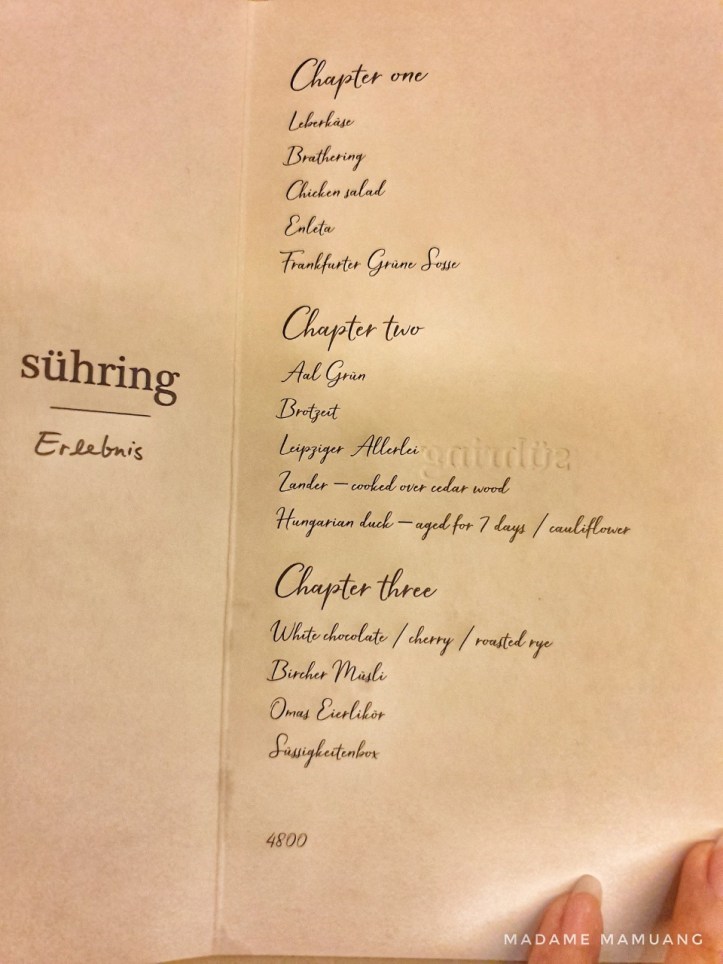 sühring
Erlebnis
Chapter one
Leberkäse
Brathering
Chicken salad
Enleta
Frankfurter Grüne Sosse
Chapter two
Aal Grün
Brotzeit
Leipziger Allerlei
sühring
Zander – cooked over cedar wood
Hungarian duck – aged for 7 days / cauliflower
Chapter three
White chocolate / cherry / roasted rye
Bircher Müsli
Omas Eierlikör
Süssigkeitenbox
4800
MADAME MAMUANG